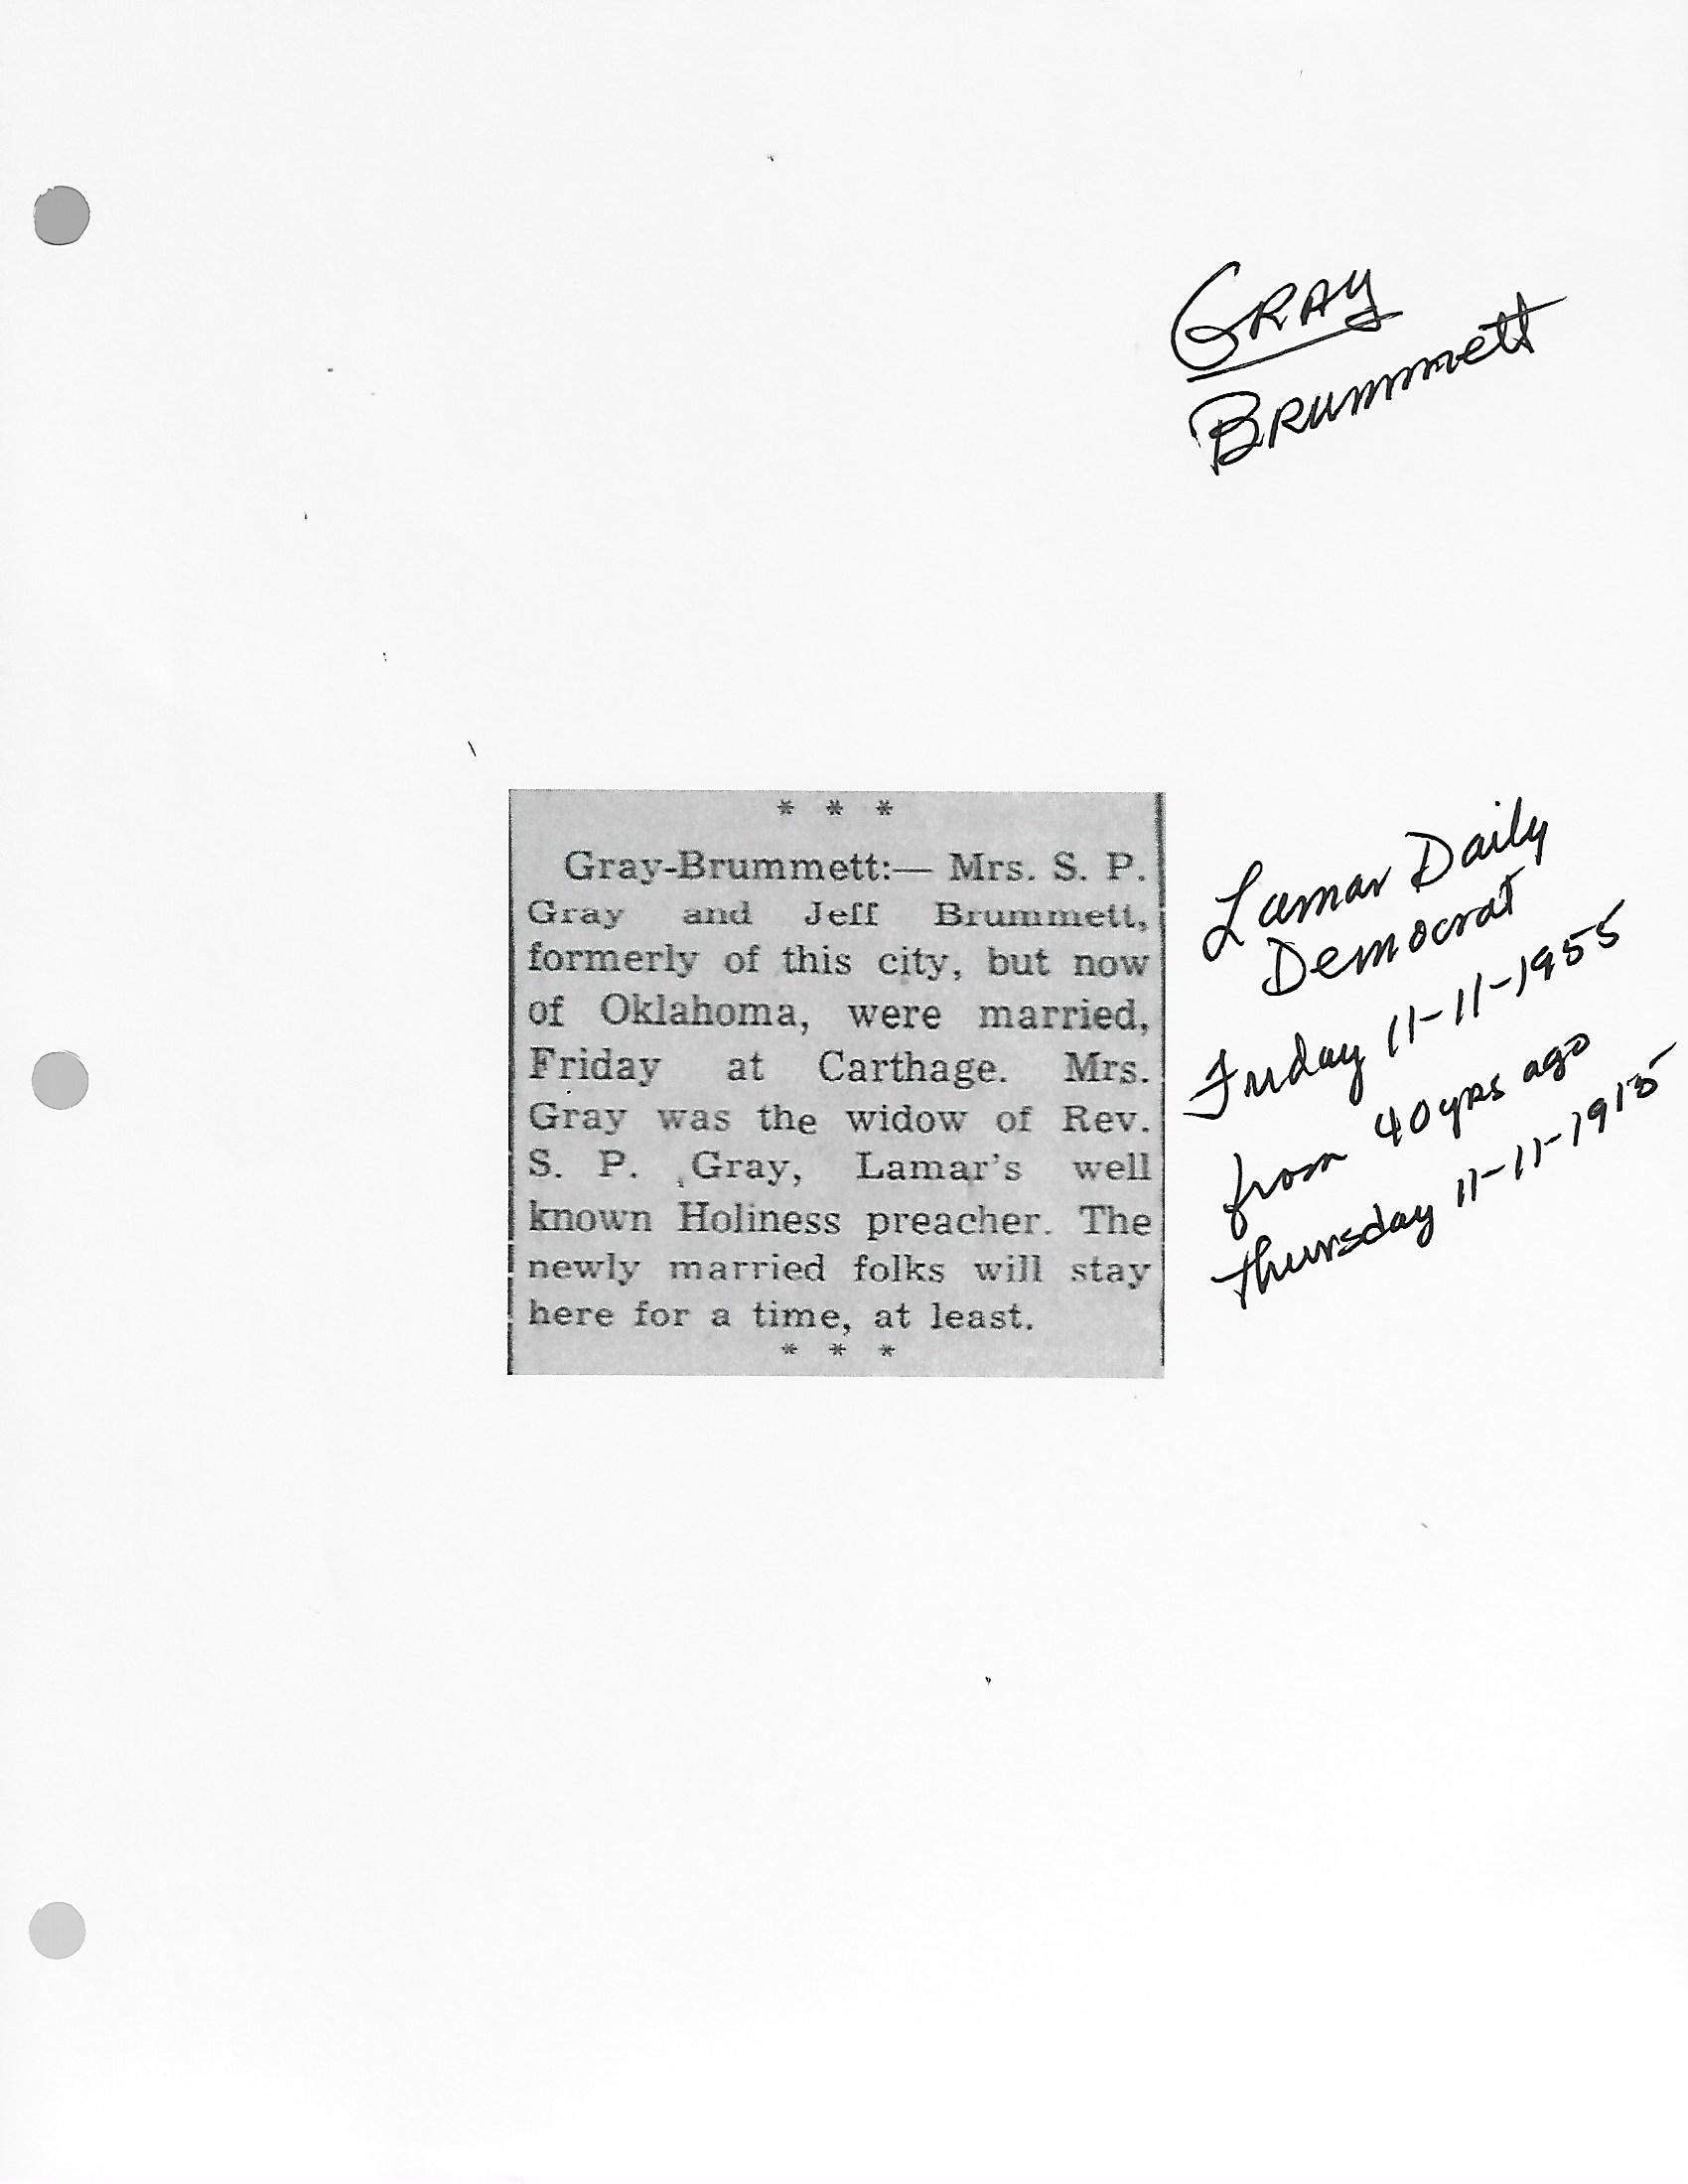 GRAY
Brummett
* * *
Gray-Brummett:— Mrs. S. P.
Gray and Jeff Brummett,
formerly of this city, but now
of Oklahoma, were married,
Friday at Carthage. Mrs.
Gray was the widow of Rev.
S. P. Gray, Lamar's well
known Holiness preacher. The
newly married folks will stay
here for a time, at least.
* * *
Lamar Daily
Democrat
Friday 11-11-1955
from 40 yrs ago
Thursday 11-11-1915